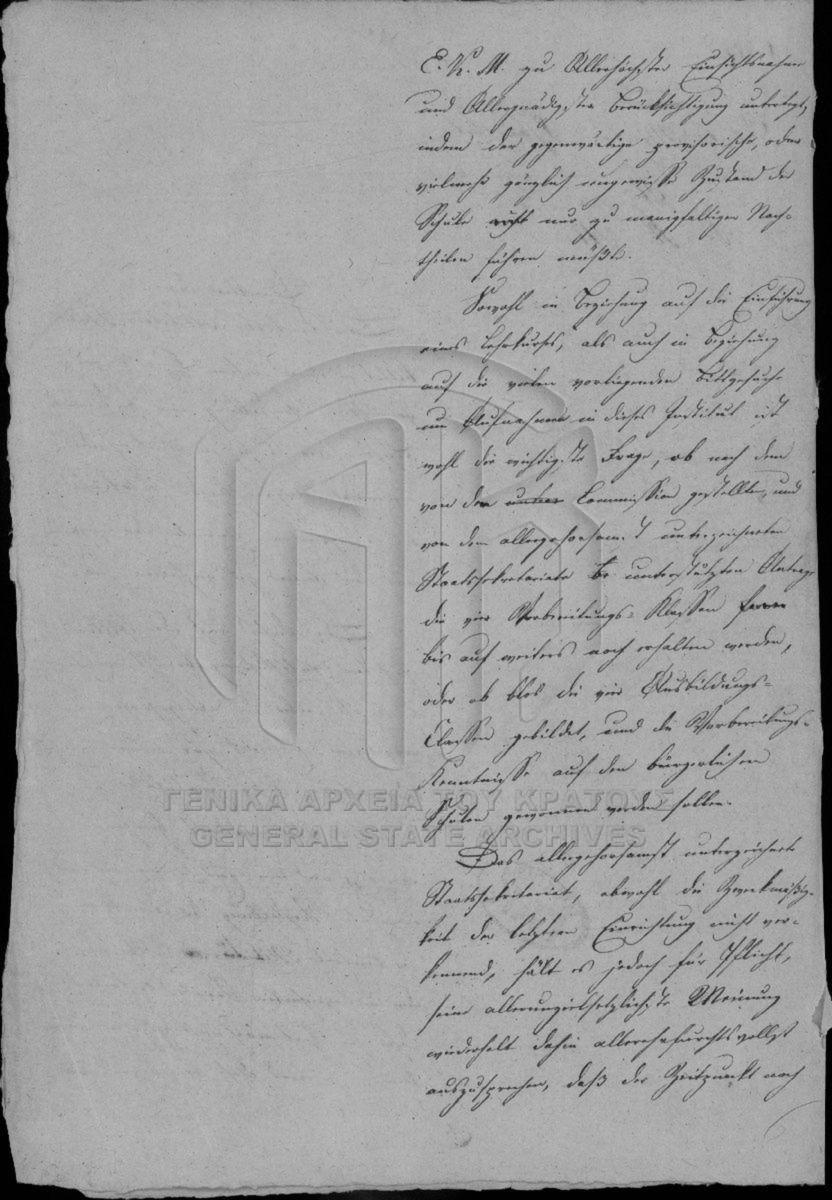 E. K. M. zu Allerhöchster Einsichtsnahme
und Allergnädigster Berücksichtigung unterlegt,
indem der gegenwärtige provisorische, oder
vielmehr gänzlich ungewisse Zustand der
Schule nicht nur zu manigfaltigen Nach-
theilen führen müßte.
Sowohl in Beziehung auf die Einführung
eines Lehrkurses, als auch in Beziehung
auf die vielen vorliegenden Bittgesuche
um Aufnahme in dieses Institut ist
wohl die wichtigste Frage, ob nach dem
von der unter Commission gestellten, und
von dem allergehorsamst unterzeichneten
Staatssekretariate unterstützten Antrage
die vier Vorbereitungs-Klassen ferner
bis auf weiters noch erhalten werden,
oder ob blos die vier Ausbildungs-
Classen gebildet, und die Vorbereitungs-
Kenntnisse auf den bürgerlichen
Schulen gewonnen werden sollen.
Das allergehorsamst unterzeichnete
Staatssekretariat, obwohl die Zweckmäßig-
keit der letztern Einrichtung nicht ver-
kennend, hält es jedoch für Pflicht,
seine allerunzielsetzlichste Meinung
wiederholt dahin allerehrfurchtsvollst
auszusprechen, daß der Zeitpunkt noch
ΓΕΝΙΚΑ ΑΡΧΕΙΑ ΤΟΥ ΚΡΑΤΟΥΣ
GENERAL STATE ARCHIVES